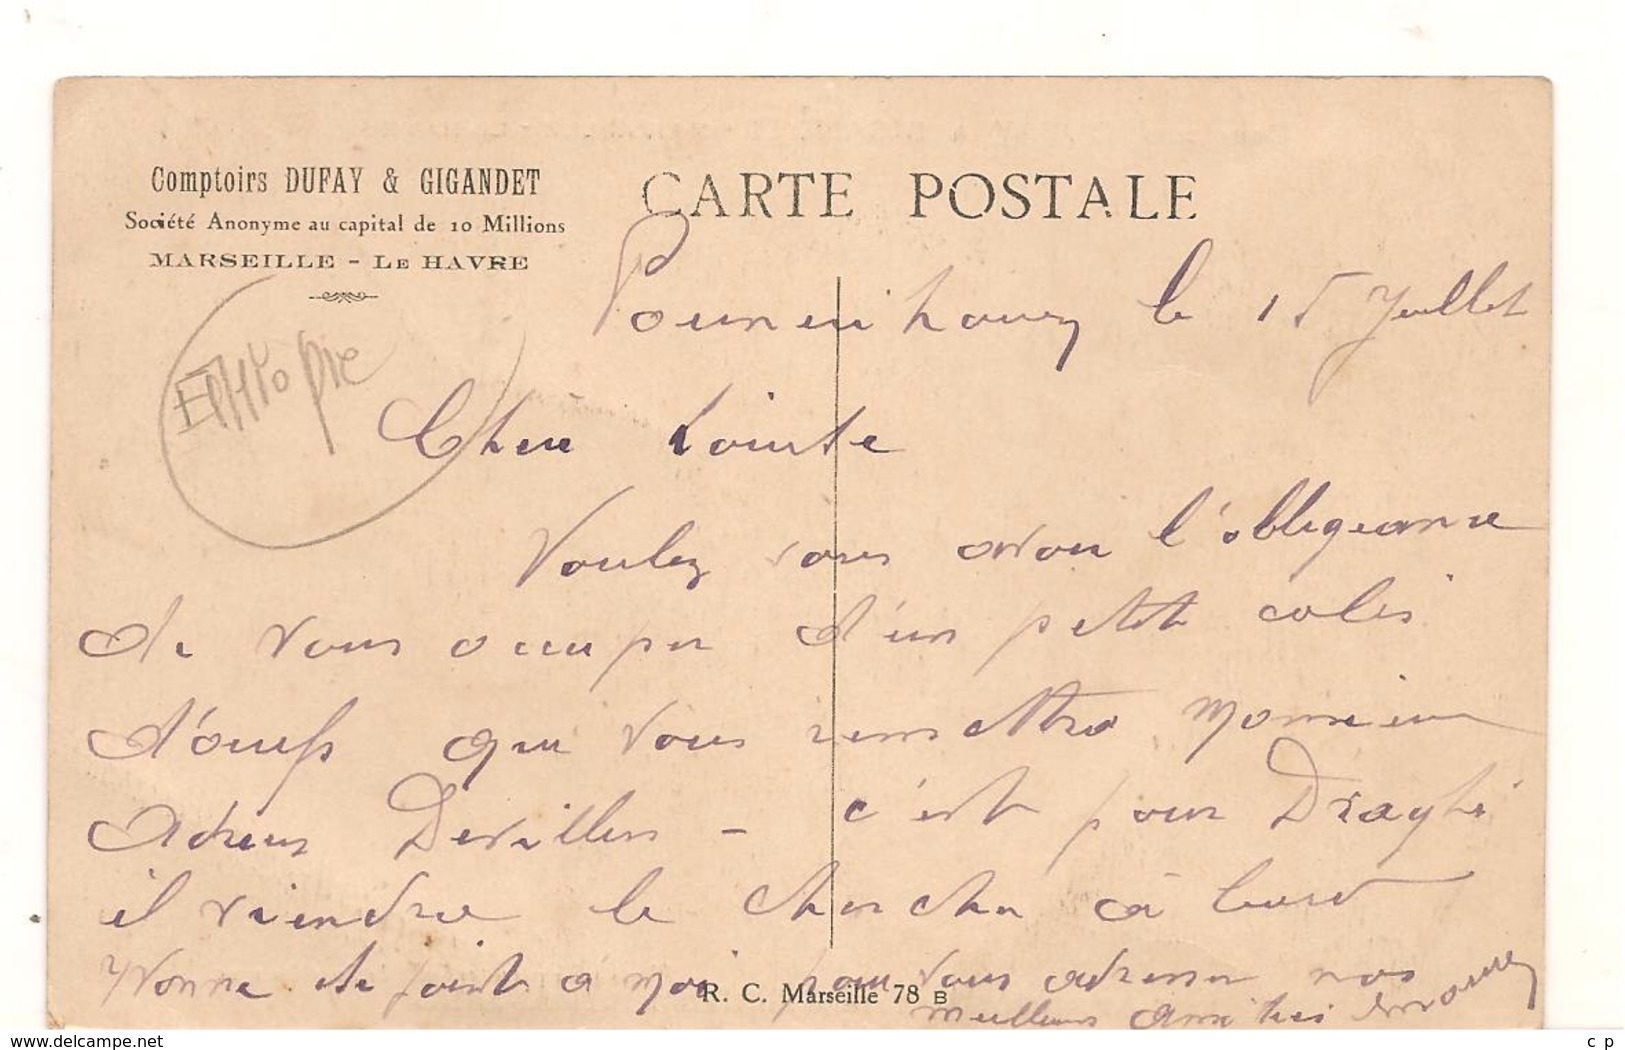 Comptoirs DUFAY & GIGANDET
Société Anonyme au capital de 10 Millions
MARSEILLE - LE HAVRE
CARTE POSTALE
le 15 Juillet
Ethiopie
Voulez vous avoir l'obligeance
de vous occuper d'un petit colis
d'œufs que vous remettra Monsieur
Adrien Devillers - c'est pour Draghi
il viendra le chercher à bord
Yvonne se joint à moi pour vous adresser nos
meilleures amitiés
R. C. Marseille 78 B
c p